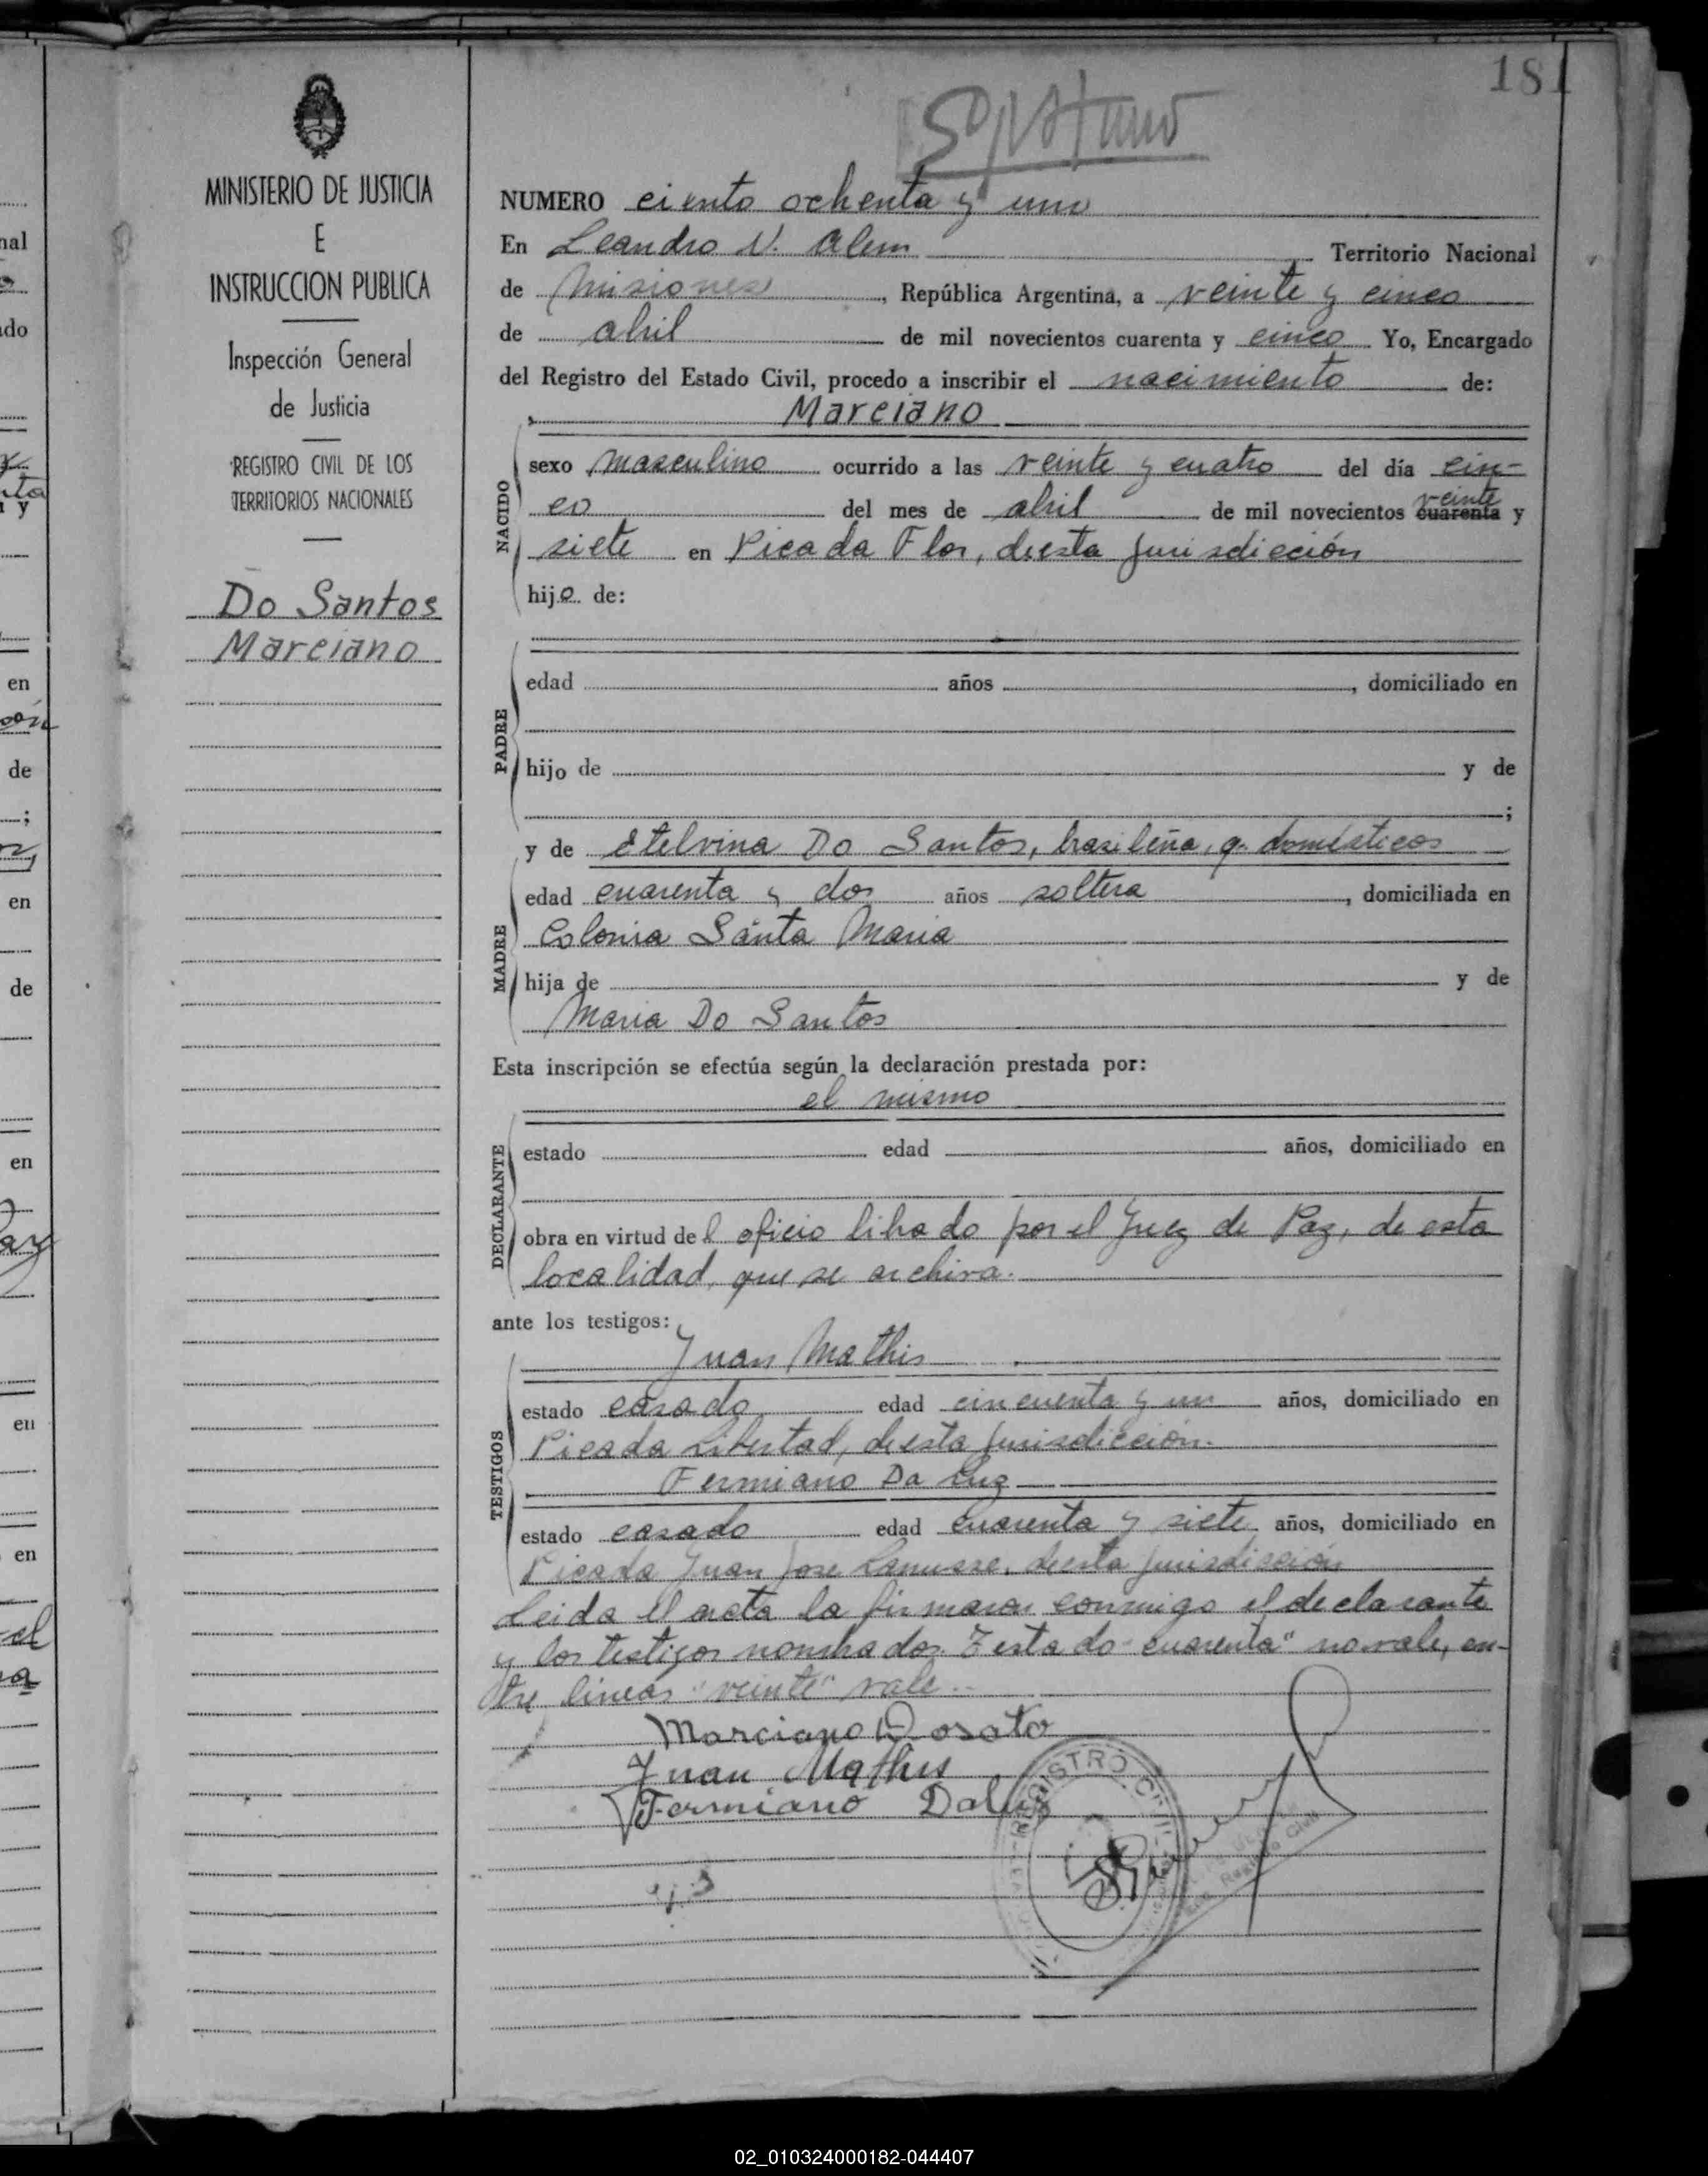 181
MINISTERIO DE JUSTICIA
E
INSTRUCCION PUBLICA
Inspección General
de Justicia
REGISTRO CIVIL DE LOS
TERRITORIOS NACIONALES
Do Santos
Marciano
NUMERO ciento ochenta y uno
En Leandro N. Alem Territorio Nacional
de Misiones, República Argentina, a veinte y cinco
de abril de mil novecientos cuarenta y cinco Yo, Encargado
del Registro del Estado Civil, procedo a inscribir el nacimiento de:
Marciano
NACIDO
sexo masculino ocurrido a las veinte y cuatro del día cin-
co del mes de abril de mil novecientos cuarenta veinte y
siete en Picada Flor, de esta jurisdicción
hijo de:
PADRE
edad años , domiciliado en
hijo de y de
;
y de Etelvina Do Santos, brasileña, q. domésticos
MADRE
edad cuarenta y dos años soltera , domiciliada en
Colonia Santa Maria
hija de y de
Maria Do Santos
Esta inscripción se efectúa según la declaración prestada por:
el mismo
DECLARANTE
estado edad años, domiciliado en
obra en virtud del oficio librado por el Juez de Paz, de esta
localidad, que se archiva.
ante los testigos:
Juan Mathis
TESTIGOS
estado casado edad cincuenta y un años, domiciliado en
Picada Libertad, de esta jurisdicción.
Fermiano Da Luz
estado casado edad cuarenta y siete años, domiciliado en
Picada Juan Jose Lanusse, de esta jurisdicción
Leida el acta la firmaron conmigo el declarante
y los testigos nombrados. Testado "cuarenta" no vale, en-
tre líneas "veinte" vale.
Marciano Dosato
Juan Mathis
Fermiano Daluz
REGISTRO CIVIL
Registro Civil
en
de
en
de
en
en
en
02_010324000182-044407